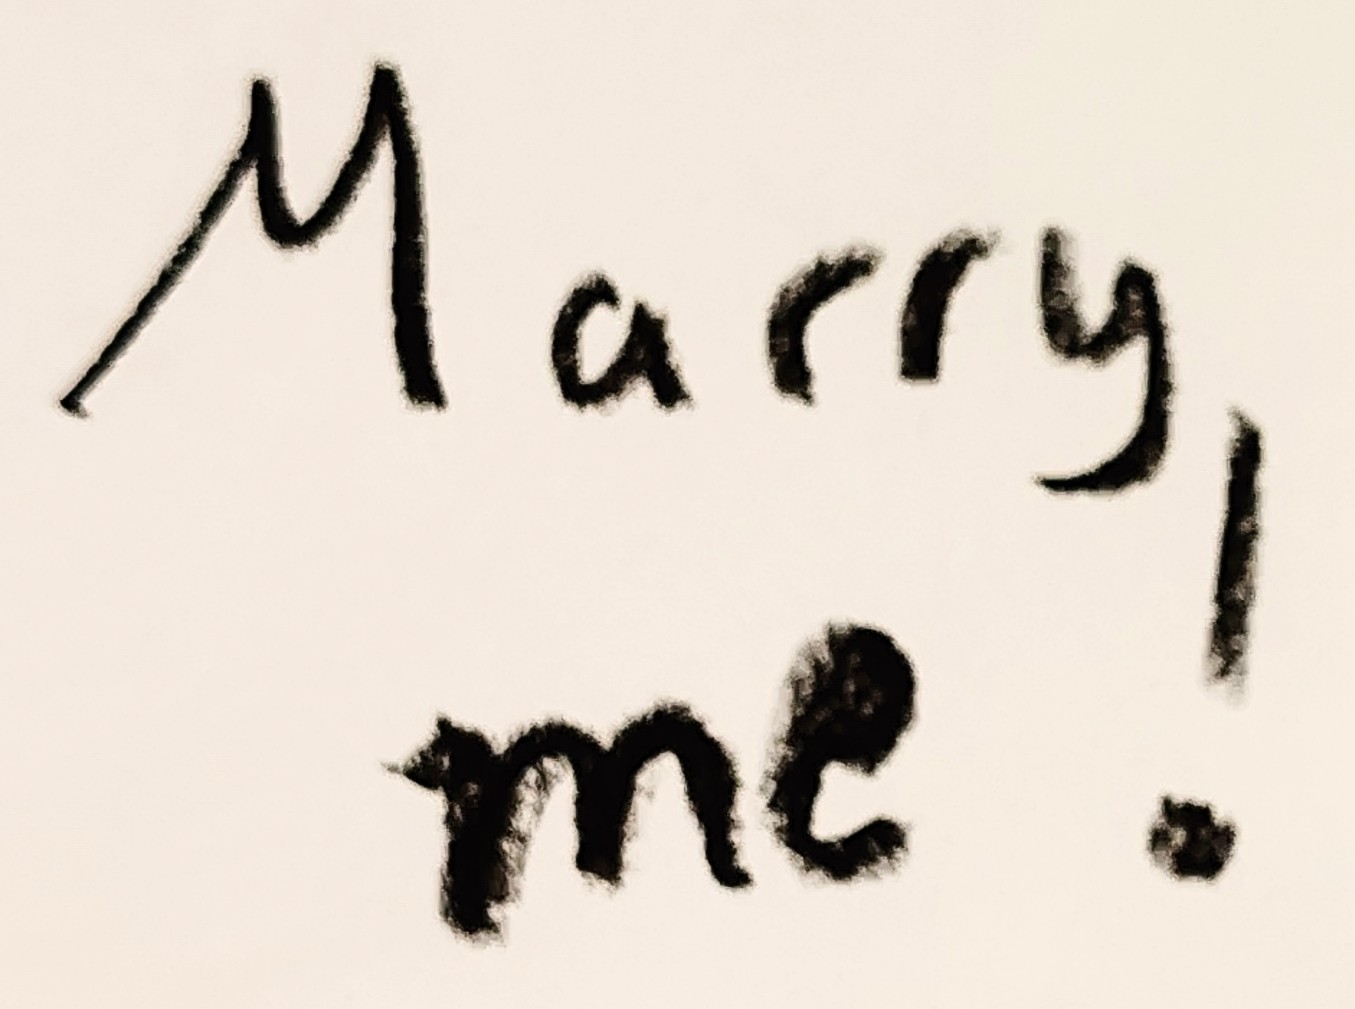 Marry
me!